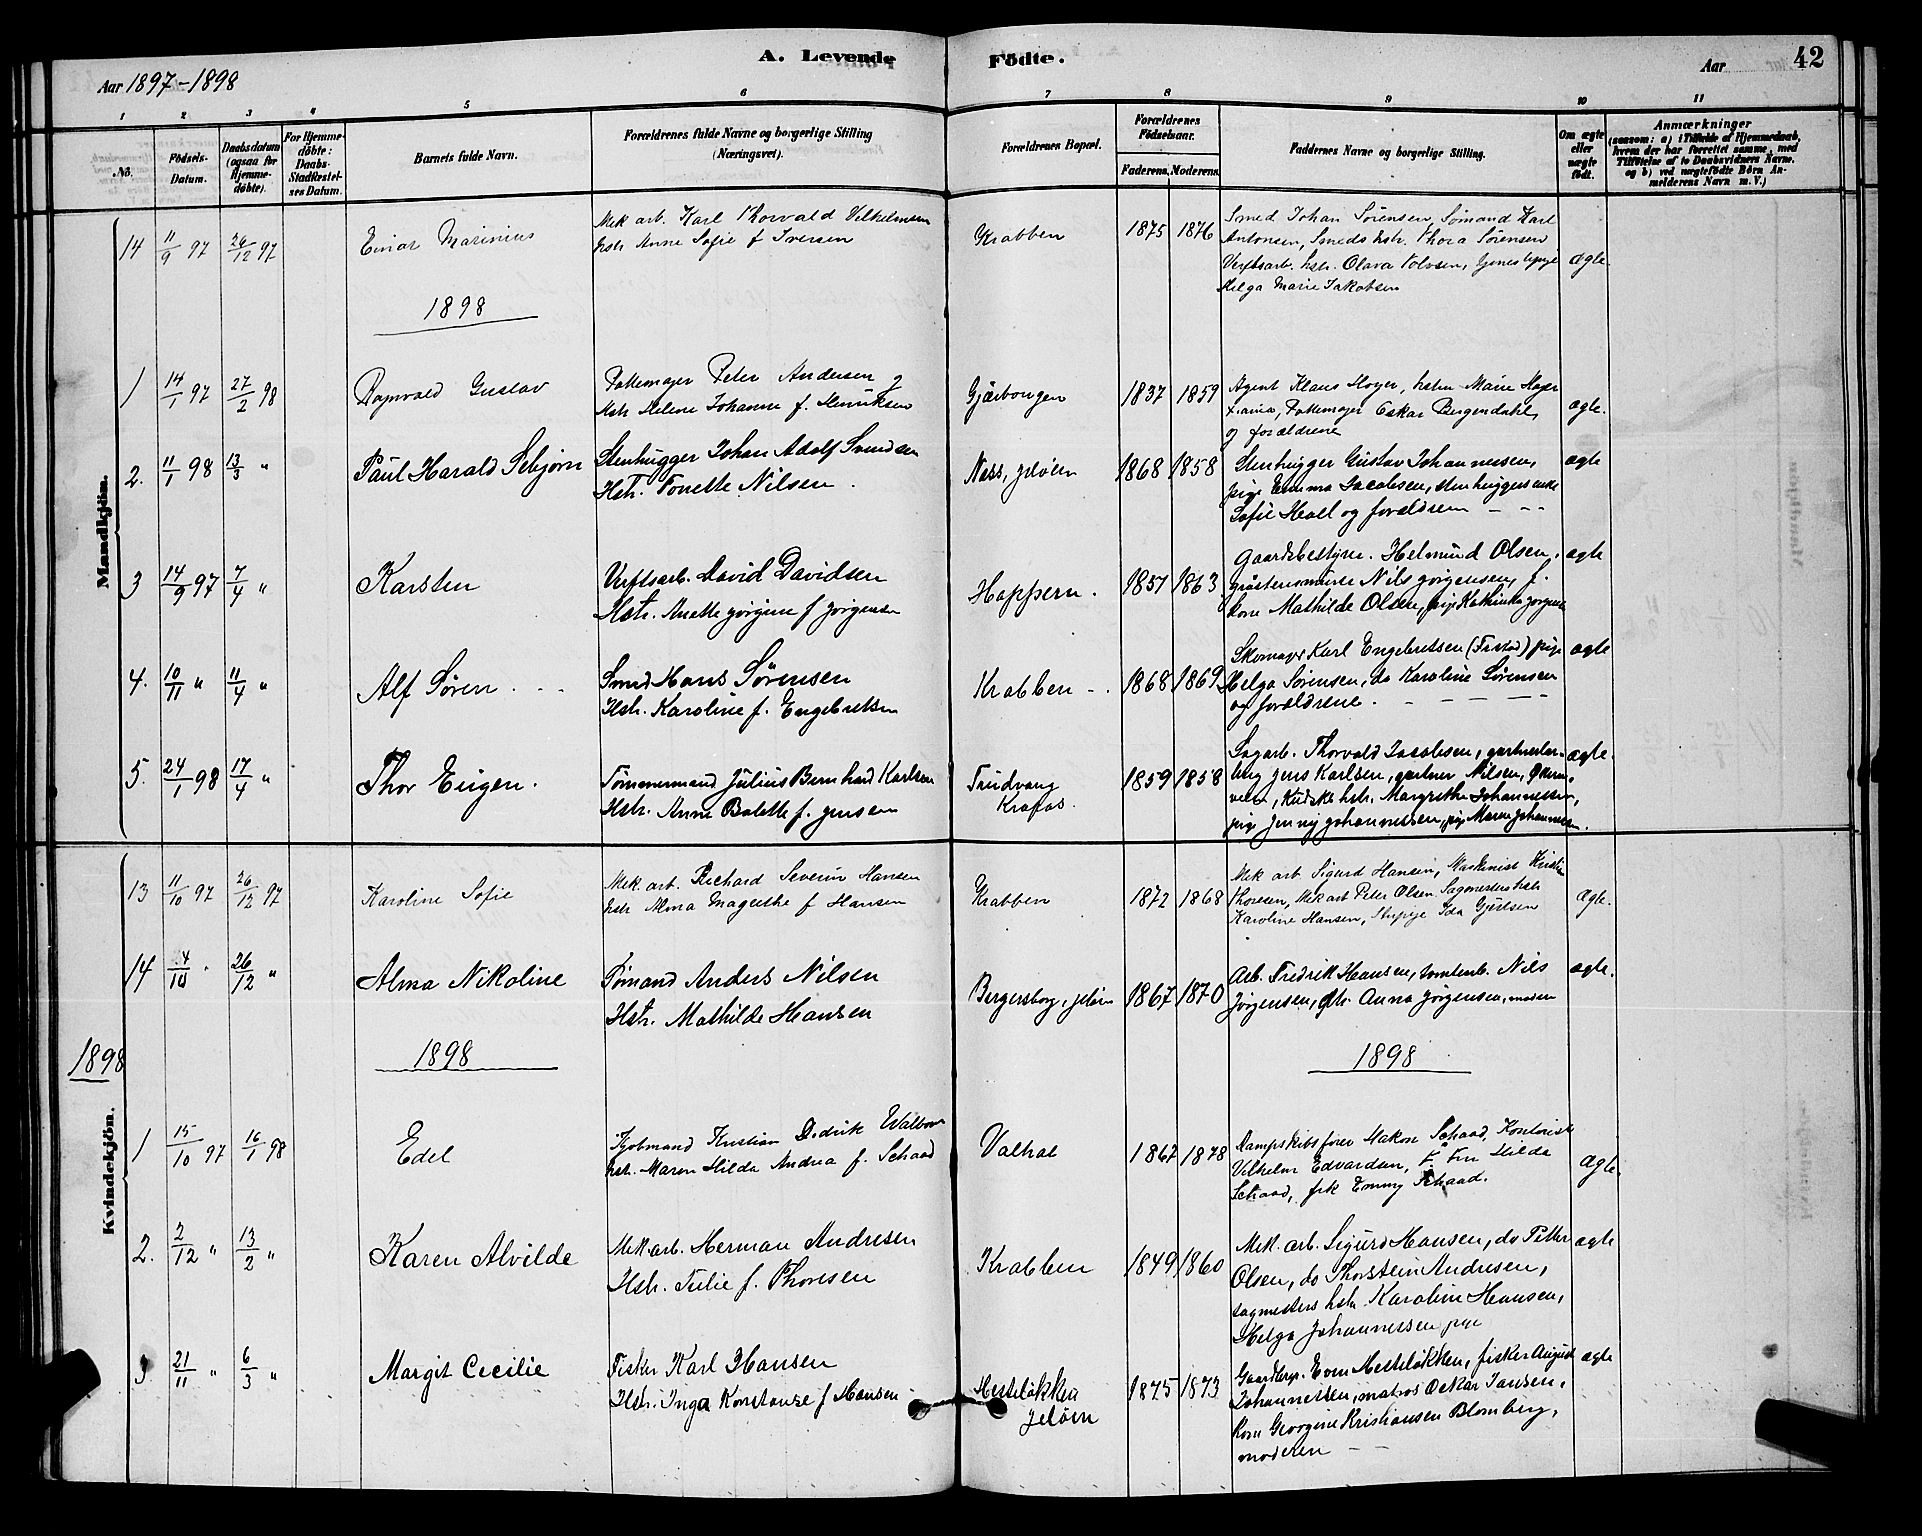 Aar 1897-1898
A. Levende Födte.
Aar
42
1 2 3 4 5 6 7 8 9 10 11
No.
Födsels-Datum.
Daabsdatum (ogsaa for Hjemmedöbte).
For Hjemmedöbte: Daabs-Stadfæstelses Datum.
Barnets fulde Navn.
Forældrenes fulde Navne og borgerlige Stilling (Næringsvei).
Forældrenes Bopæl.
Forældrenes Födselsaar.
Faderens. Moderens.
Faddernes Navne og borgerlige Stilling.
Om ægte eller uægte födt.
Anmærkninger
(saasom: a) i Tilfælde af Hjemmedaab, hvem der har forrettet samme, med Tilföielse af to Daabsvidners Navne, og b) ved uægtefödte Börn Anmelderens Navn m. V.)
Mandkjön.
14 11/9 97 26/12 97 Einar Marinius
Mek arb. Karl Thorvald Vilhelmsen
hstr Anne Sofie f Iversen
Krabben 1875 1876
Smed Johan Sørensen, Sömand Karl
Antonsen, Smeds hstr. Thora Sørensen
Verftsarb. hstr. Olava
Helga Marie Jakobsen
ægte.
1898
1 14/1 97 27/2 98 Ragnvald Gustav
Pottemager Peter Andersen og
Hstr Helene Johanne f. Henriksen
Gjærbougen 1837 1859
Agent Klaus Høyer, hstru Marie Høyer
Xania, Pottemager Oskar Bergendahl,
og forældrene
ægte.
2. 11/1 98 13/3 " Paul Harald Sebjørn
Stenhugger Johan Adolf Svendsen
Hstr. Tonette Nilsen.
Næss, Jeløen 1868 1858
Stenhugger Gustav Johannessen,
pige Emma Jacobsen, stenhuggerenke
Sofie Hoel og forældrene - - -
ægte
3 14/9 97 7/4 " Karsten
Verftsarb. David Davidsen
Hstr. Anette Jørgine f Jørgensen
Hoppern. 1857 1863
Gaardsbestyrer. Helmund Olsen,
gråstensmurer Nils Jørgensen, f.
kone Mathilde Olsen, pige Kathinka Jørgens
ægte
4. 10/11 " 11/4 " Alf Søren . - -
Smed Hans Sørensen
Hstr. Karoline f. Engebretsen
Krabben - . 1868 1869
Skomager Karl Engebretsen (Fristad) pige
Helga Sørensen, do Karoline Sørensen
og forældrene. - - - -
ægte
5. 24/1 98 17/4 " Thor Eugen.
Tömmermand Julius Bernhard Karlsen
Hstr. Anne Bolette f. Jensen
Trudvang
Krapfos. 1859 1858
Sagarb. Thorvald Jacobsen, gartnerlær-
ling Jens Karlsen, gartner Nilsen,
Kudske hstr. Margrethe Johannessen,
pige Jenny Johannessen, pige Maren Johannessen.
ægte.
Kvindekjön.
13 11/10 97 26/12 97 Karoline Sofie
Mek. arb. Richard Severin Hansen
hstr Alma Magrethe f Hansen
Krabben 1872 1868
Mek arb Sigurd Hansen, Maskinist Kristian
Thoresen, Mek arb Peter Olsen Sagmesters hstr
Karoline Hansen, Ida Gjertsen
ægte.
14 4/10 " 26/12 " Alma Nikoline
Sömand Anders Nilsen
Hstr. Mathilde Hansen
Bergersborg, Jeløen 1867 1870
Arb. Fredrik Hansen, tomtearb. Nils
Jørgensen, Anna Jørgensen, moderen
ægte.
1898
1898
1898
1 15/10 97 16/1 98 Edel
Kjøbmand Kristian Didrik Walbom
hstr. Maren Hilda Andrea f. Schaad
Valhal 1867 1878
Dampskibsfører Hakon Schaad, Kontorist
Vilhelm Edvardsen, Fru Hilda
Schaad, frk Emmy Schaad.
ægte.
2. 2/12 " 13/2 " Karen Alvilde
Mek. arb. Herman Andresen
Hstr. Julie f. Thoresen
Krabben 1849 1860
Mek. arb. Sigurd Hansen, do Petter
Olsen, do Thorstein Andresen,
sagmesters hstr Karoline Hansen,
Helga Johannessen pige
ægte
3 21/11 " 6/3 " Margit Cecilie
Fisker Karl Hansen
Hstr. Inga Konstanse f Hansen
Hesteløkken
Jeløen 1875 1873
Gaardbrgr. Even Hesteløkken, fisker August
Johannessen, matros Oskar Jansen,
kone Georgine Kristiansen Blomberg,
moderen - -
ægte